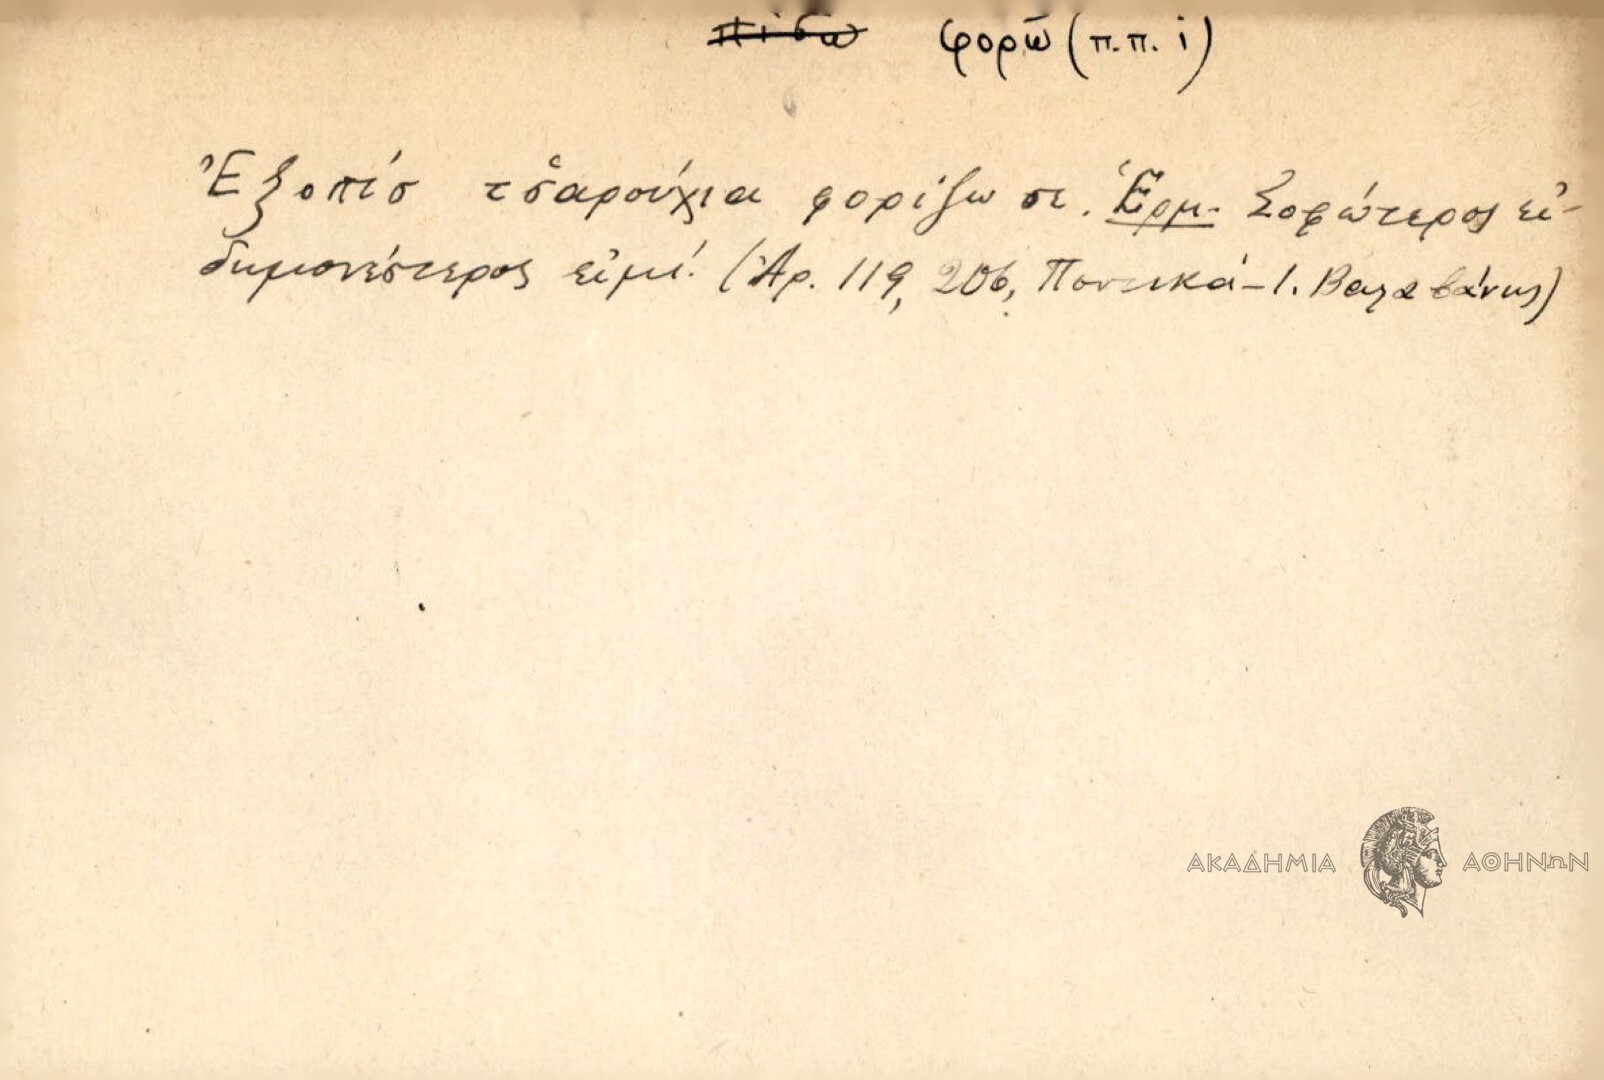 πίσω φορῶ (π.π. i)
Ἐξοπίσ τσ̌αρούχια φορίζω σε. Ἑρμ. Σοφώτερος εἰ-
δημονέστερος εἰμί. (Ἀρ. 119, 206, Ποντικά - Ι. Βαλαβάνης)
ΑΚΑΔΗΜΙΑ ΑΘΗΝΩΝ